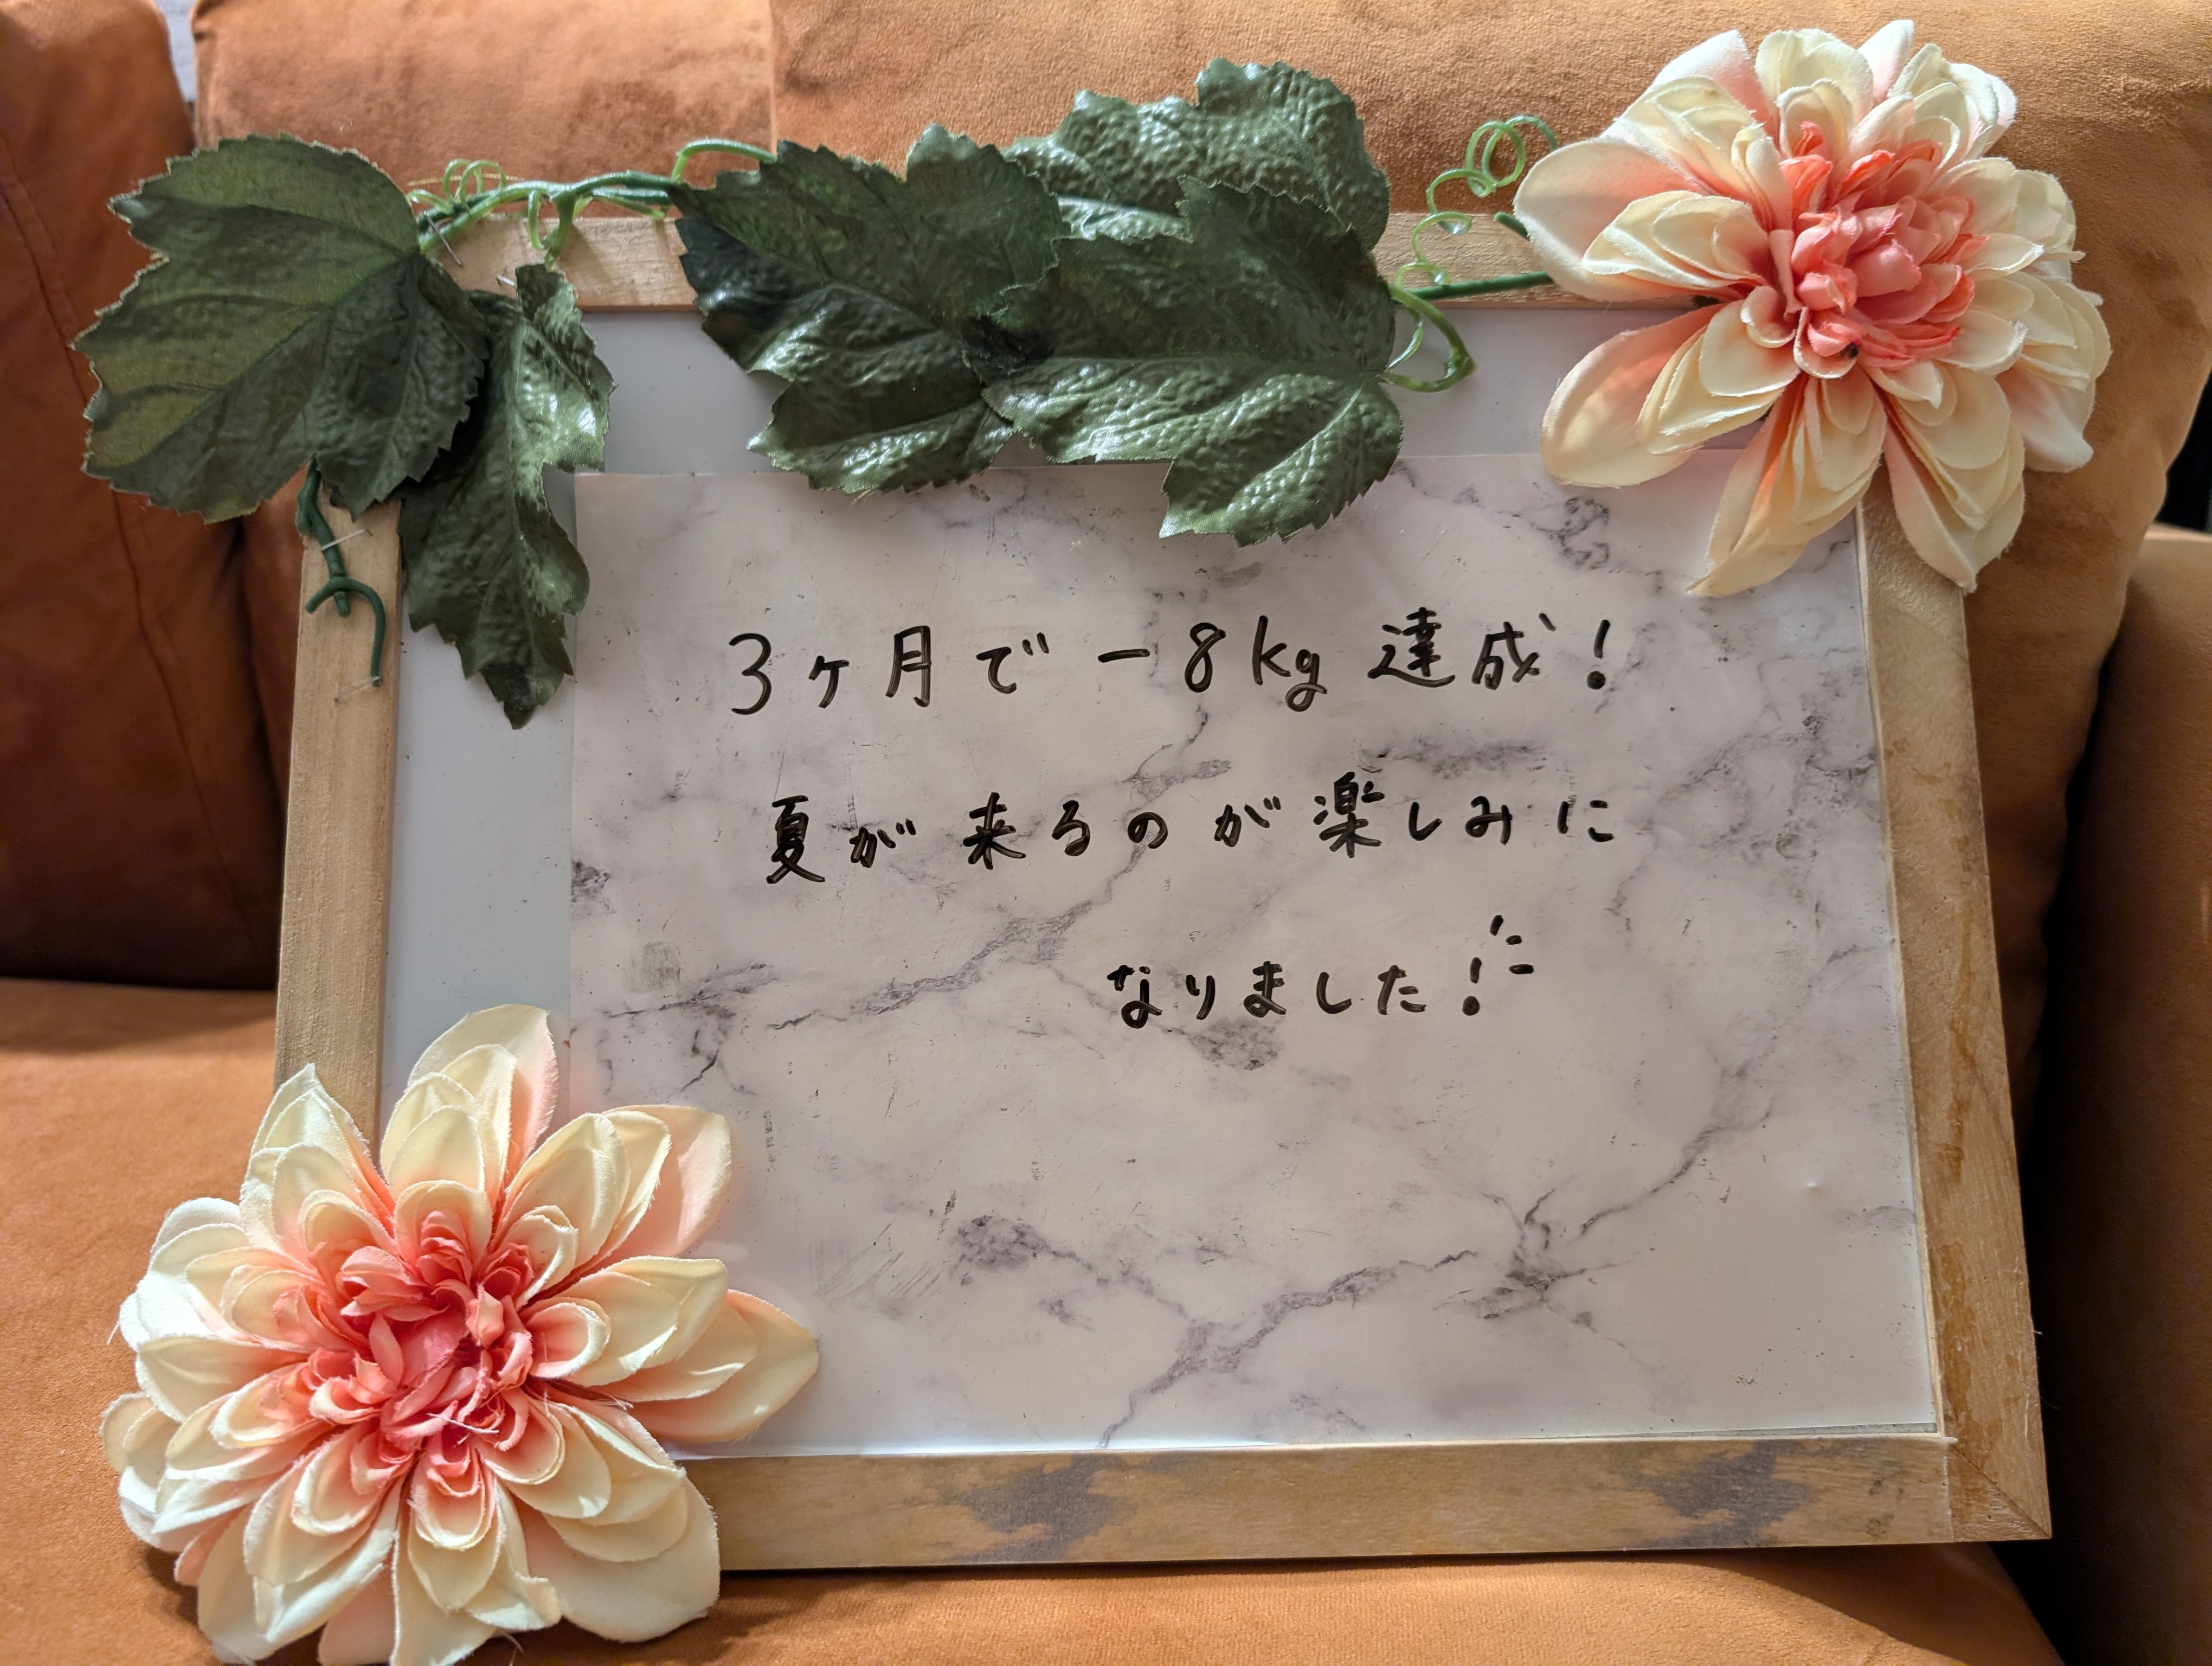 3ヶ月で-8kg達成!
夏が来るのが楽しみに
なりました!